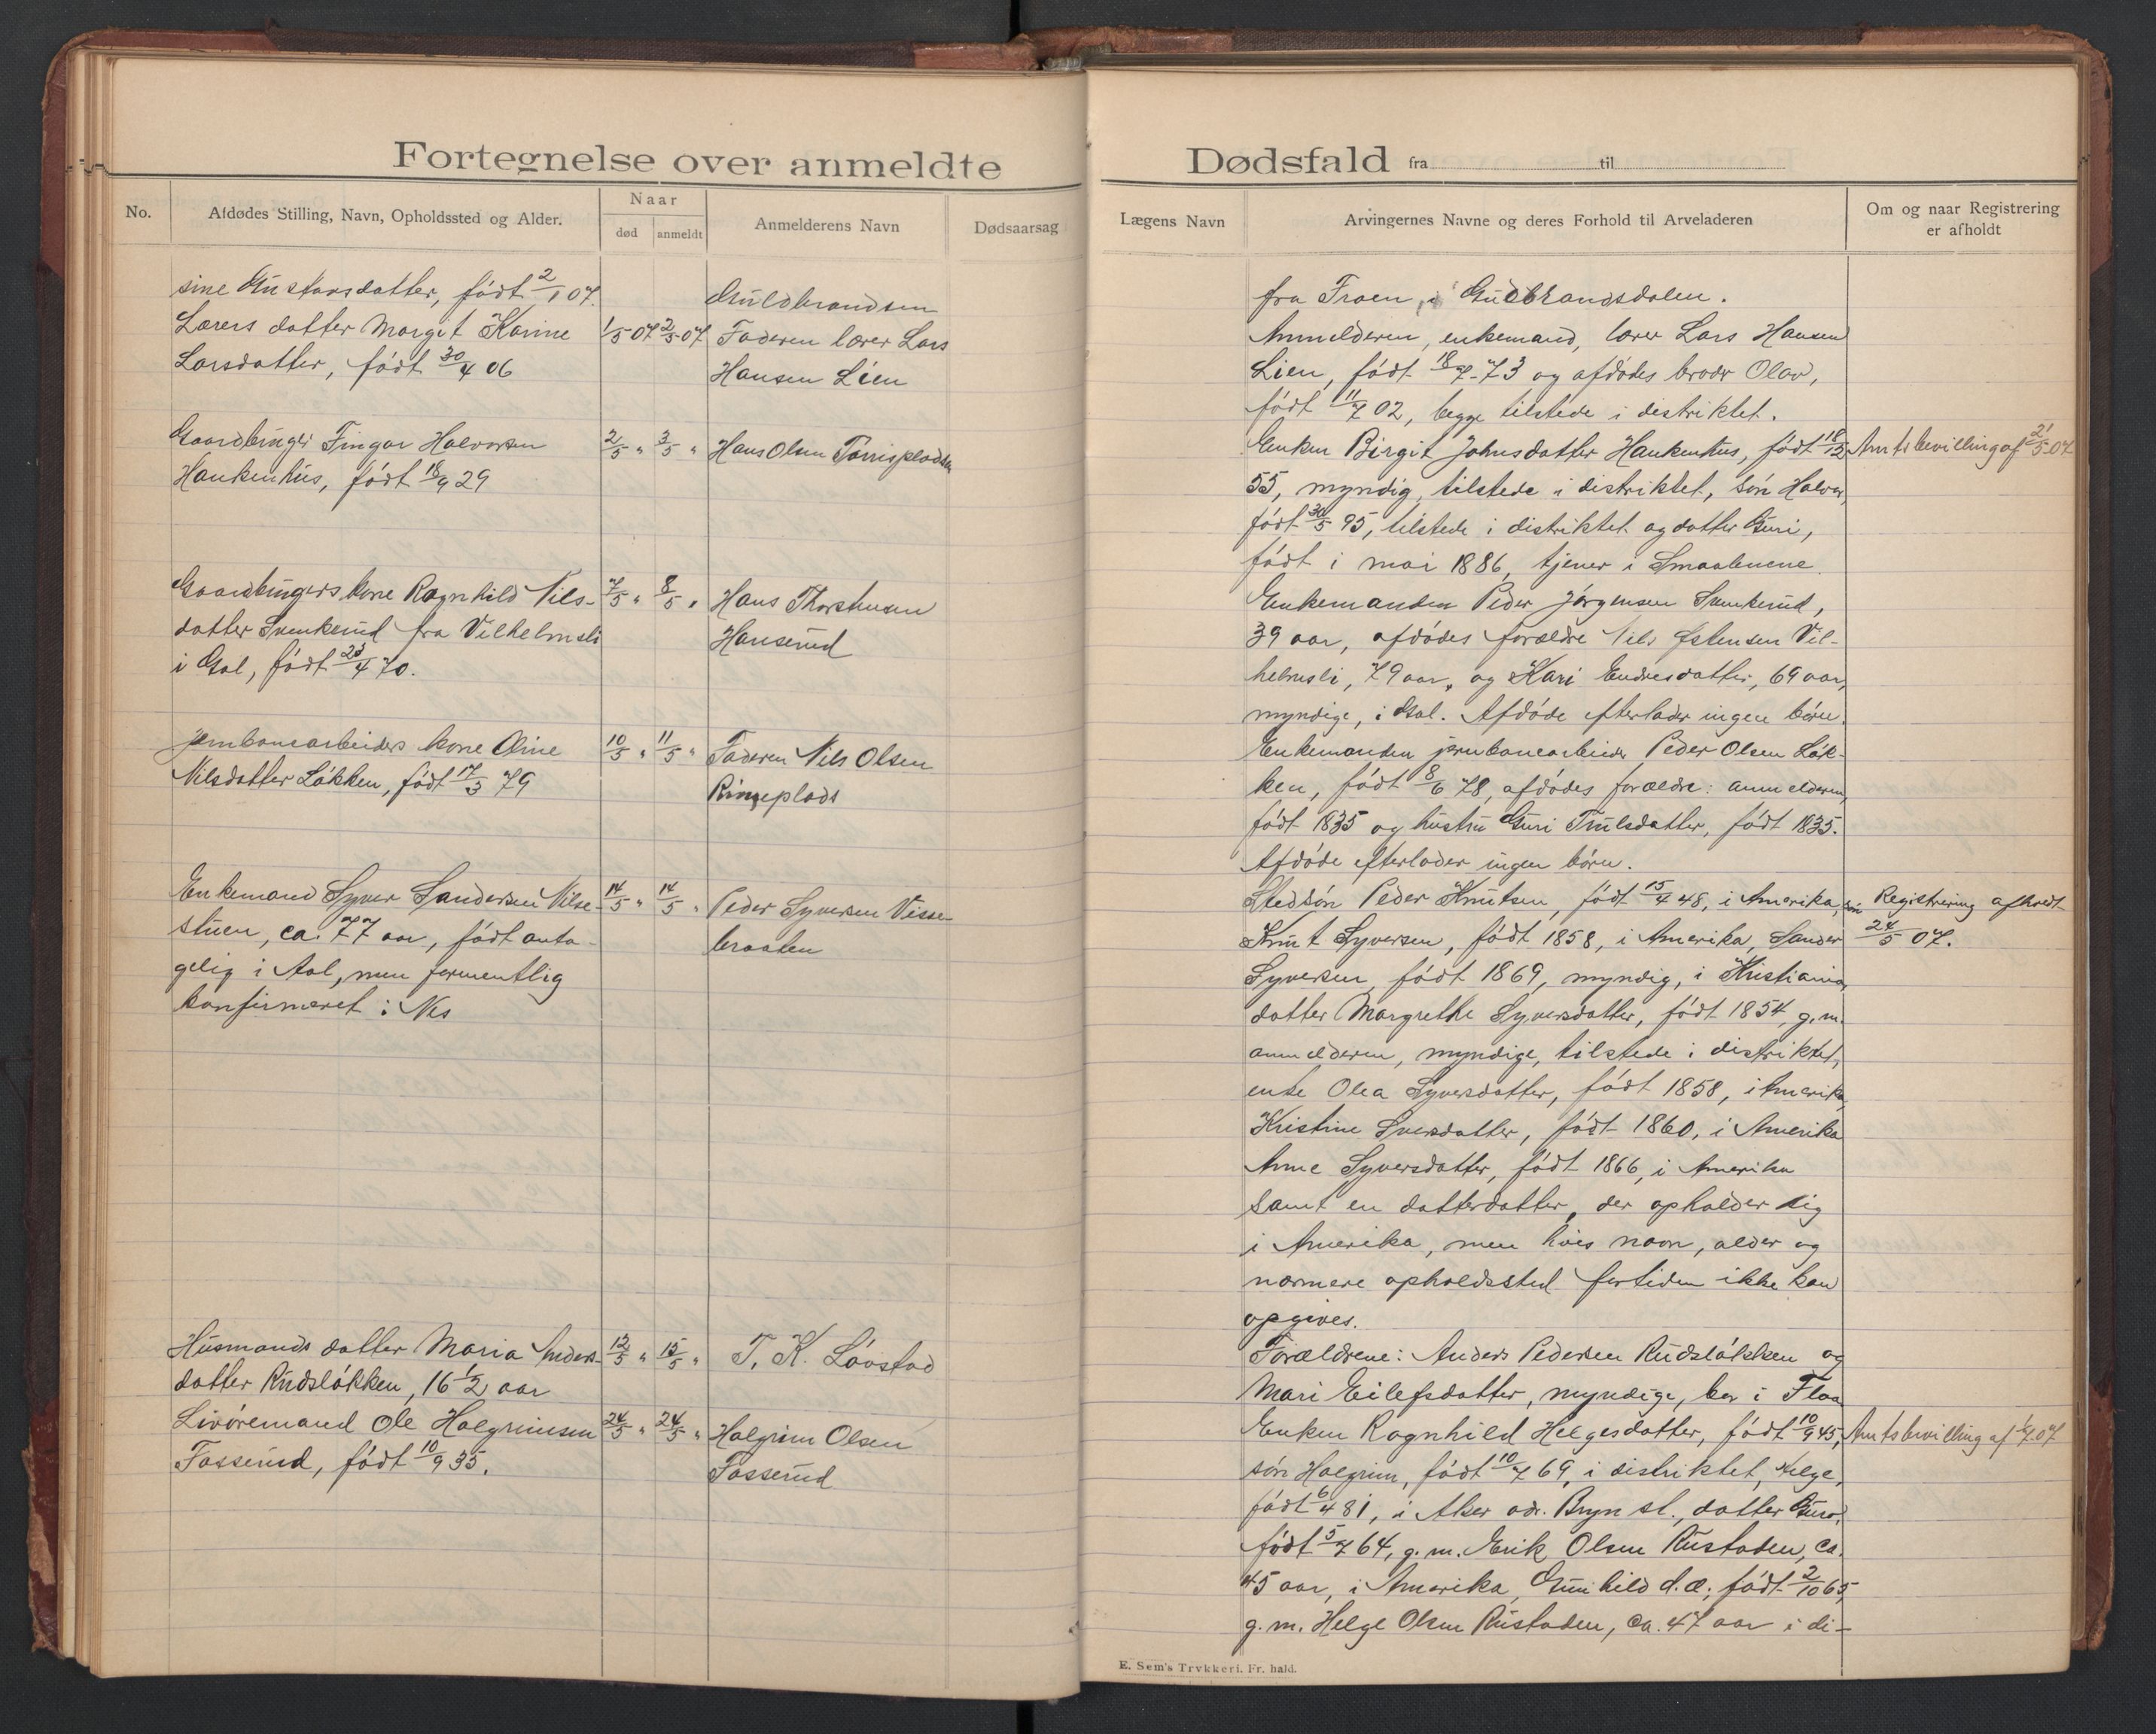 Fortegnelse over anmeldte
No.
Afdødes Stilling, Navn, Opholdssted og Alder.
Naar
død
anmeldt
Anmelderens Navn
Dødsaarsag
sine Gustavsdatter, født 2/1 07.
Guldbrandsen
Lærers datter Margit Karine
1/5 07 2/5 07
Faderen lærer Lars
Larsdatter, født 30/4 06
Hansen Lien
Gaardbruger Fingar Halvorsen
2/5 " 3/5 "
Hans Olsen Torrispladsen
Haukenhus, født 18/9 29
Gaardbrugers kone Ragnhild Nils-
7/5 " 8/5 "
Hans Thorstensen
datter Svenkerud fra Vilhelmsli
Hanserud
i Gol, født 23/4 70.
Jernbanearbeiders kone Oline
10/5 " 11/5 "
Faderen Nils Olsen
Nilsdatter Løkken, født 17/3 79
Ringeplads
Enkemand Syver Sandersen Nilse-
14/5 " 14/5 "
Peder Syversen Visse-
stuen, ca. 77 aar, født anta-
braaten
gelig i Aal, men formentlig
konfirmeret i Nes
Husmands datter Maria Anders-
12/5 " 15/5 "
T. K. Løvstad
datter Rudsløkken, 16 1/2 aar
Livøremand Ole Halgrimsen
24/5 " 24/5 "
Halgrim Olsen
Fosserud, født 10/9 35.
Fosserud
Dødsfald fra til
Lægens Navn
Arvingernes Navne og deres Forhold til Arveladeren
Om og naar Registrering
er afholdt
fra Froen i Gudbrandsdalen.
Anmelderen, enkemand, lærer Lars Hansen
Lien, født 18/7-73 og afdødes broder Olav,
født 11/7 02, begge tilstede i distriktet.
Enken Birgit Johnsdatter Haukenhus, født 18/12
Amtsbevilling af 21/5 07
55, myndig, tilstede i distriktet, søn Halvor,
født 30/5 95, tilstede i distriktet og datter Guri,
født i mai 1886, tjener i Smaalenene.
Enkemanden Peder Jørgensen Svenkerud,
39 aar, afdødes forældre Nils Østensen Vil-
helmsli, 79 aar, og Kari Endresdatter, 69 aar,
myndige, i Gol. Afdøde efterlader ingen børn.
Enkemanden jernbanearbeider Peder Olsen Løk-
ken, født 8/6 78, afdødes forældre: anmelderen,
født 1835 og hustru Guri Trulsdatter, født 1835.
Afdøde efterlader ingen børn.
Stedsøn Peder Knutsen, født 15/4 48, i Amerika, søn
Registrering afholdt
Knut Syversen, født 1858, i Amerika, Sander
24/5 07.
Syversen, født 1869, myndig, i Kristiania,
datter Margrethe Syversdatter, født 1854, g.m.
anmelderen, myndige, tilstede i distriktet,
enke Olea Syversdatter, født 1858, i Amerika,
Kristine Sversdatter, født 1860, i Amerika
Anne Syversdatter, født 1866, i Amerika
samt en datterdatter, der opholder sig
i Amerika, men hvis navn, alder og
nærmere opholdssted fortiden ikke kan
opgives.
Forældrene: Anders Pedersen Rudsløkken og
Mari Eilefsdatter, myndige, bor i Flaa
Enken Ragnhild Helgesdatter, født 10/9 45,
Amtsbevilling af 1/7 07
søn Halgrim, født 10/7 69, i distriktet, Helge,
født 6/4 81, i Aker adr. Bryn st., datter Guro,
født 5/7 64, g.m. Erik Olsen Rustaden, ca.
45 aar, i Amerika, Gunhild d.æ., født 2/10 65,
g.m. Helge Olsen Rustaden, ca. 47 aar i di-
E. Sem's Trykkeri. Fr.hald.